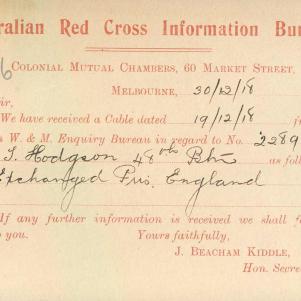 ralian Red Cross Information Bu
6
Colonial Mutual Chambers, 60 Market Street,
Melbourne, 30/12/18
ir,
We have received a Cable dated 19/12/18 f
W. & M. Enquiry Bureau in regard to No. 2289
J. Hodgson 48th Btn as follo
Exchanged Pris. England
If any further information is received we shall f
o you. Yours faithfully,
J. BEACHAM KIDDLE,
Hon. Secre